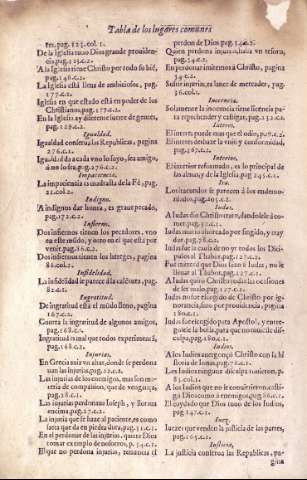 Tabla de los lugares comunes
fer, pag. 123. col. 1.
De la Iglesia tuuo Dios grande prouiden-
cia, pag.
A la Iglesia tiene Christo por todo su bié,
pag. 146. c.2.
La Iglesia està llena de ambiciosos, pag.
177. c.1.
Iglesia en que estado està en poder de los
Christianos, pag. 177. c.2.
En la Iglesia ay diferentes suertes de gentes,
pag.
Igualdad.
Igualdad conserua las Republicas, pagina
276. c.1.
Igualdad a cada vno lo suyo, sea amigo,
Impaciencia.
La impaciencia es madrastra de la Fè, pag.
21. col.2.
Indignos.
A indignos dar honra, es graue pecado,
pag. 172. c.2.
Infierno.
Dos infiernos tienen los pecadores, vno
en este mundo, y otro en el que està por
venir, pag.
Dos infiernos tienen los hereges, pagina
86. col.2.
Infidelidad.
La infidelidad parece à la calentura, pag.
82. c.1.
Ingratitud.
De ingratitud està el múdo lleno, pagina
167. c.2.
Contra la ingratitud de algunos amigos,
pag. 168. c.1.
Ingratitud es mal que todos experimentá,
pag. 168. c.2.
Injurias.
En Grecia auia vn altar, donde se perdona
uan las injurias, pag. 22. c.2.
Las injurias de los enemigos, mas son me-
teria de compassion, que de vengança,
pag. 28. c.2.
Las injurias perdonaua Ioseph, y
encima, pag. 17. c.2.
La injuria que se haze al paciente, es como
saeta que da en piedra dura, pag.
En el perdonar de las injurias, quiere Dios
tomar exemplo de nosotros, p. 54. c.1.
El que no perdona injurias, renuncia el
perdon de Dios, pag. 54. c.2.
Quien perdona injurias, halla vn tesoro,
pag. 54. c.2.
En perdonar imitemos à Christo, pagina
54. c.2.
Sufrir injurias, es lance de mercader, pag.
56. col.1.
Inocencia.
Solamente la inocencia tiene licencia pa-
ra reprehender y castigar, pag. 232. c.2.
Interes.
El interes puede mas que el odio, p. 9. c.2.
El interes deshaze la vniò y conformidad,
pag.
Interior.
El interior reformado, es lo principal de
las almas, y de la Iglesia pag 245. c.1.
Ira.
Los iracundos se parecen à los endemo-
niados, pag. 205. c.1.
Iudas.
A Iudas dio Christo trato, dandole la co-
mer, pag.
Iudas tuuo la mercaderia por fingido, y tray
dor, pag.
Iudas fue la causa de no yr todos los Dici-
pulos al Thabor, pag. 127. c.1.
Fue merced que Dios hizo à Iudas, no le
lleuar al Thabor, pag. 127. c.1.
A Iudas quito Christo todas las ocasiones
de ser malo, pag. 127. c.2.
Iudas no fue escogido de Christo por ig-
norancia, sino por prouidencia, pagina
180. c.1.
Iudas fue elegido para Apostol, y entre-
gòle la bolsa, para que no tuuiesse dis-
culpa, pag. 180. c.2.
Iudios.
A los Iudios arguye Christo con la hi-
storia de Ionas, pag. 72. c.2.
Los Iudios ninguna disculpa tuuieron, p.
83. c.1.
A los Iudios que no le conuirtieron, casti-
ga Dios como à enemigos, pag. 86. c.1.
El cuydado que Dios tuuo de los Iudios,
pag. 147. c.1.
Iuez.
Iuezes que venden la justicia de las partes,
pag. 165. c.2.
Iusticia.
La justicia conserua las Republicas, pa-
gina